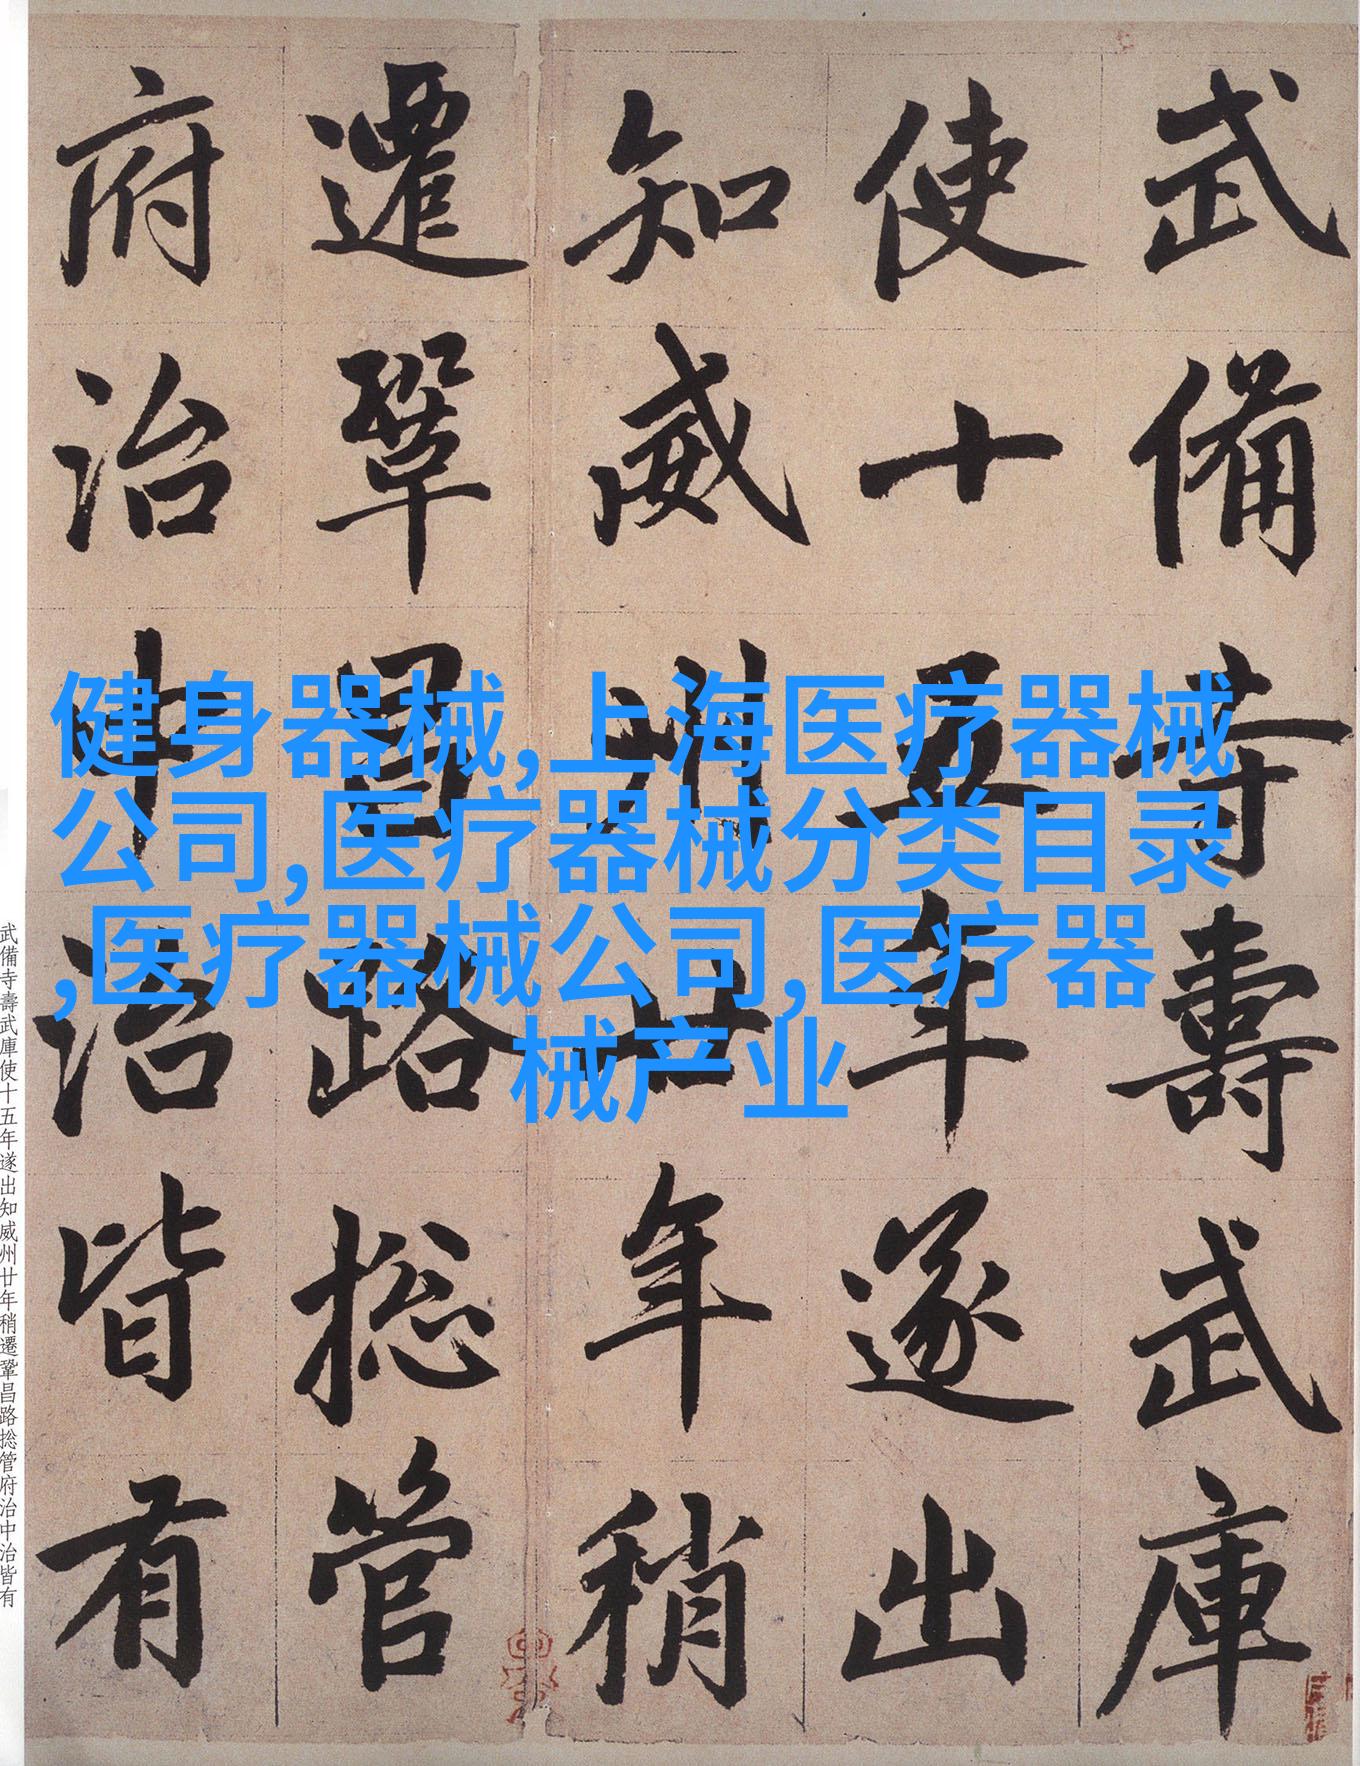 武備寺壽武庫
使十五年遂出
知威州廿年稍
遷鞏昌路捴管
府治中治皆有
健身器械,上海医疗器械
公司,医疗器械分类目录
,医疗器械公司,医疗器
械产业
武備寺壽武庫使十五年遂出知威州廿年稍遷鞏昌路捴管府治中治皆有